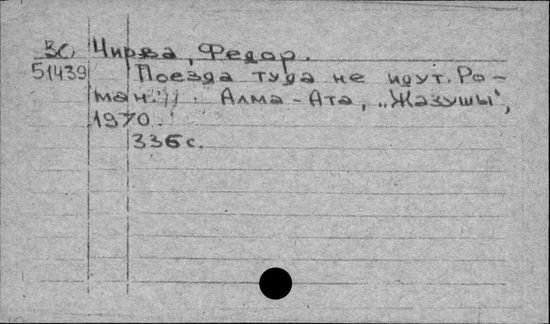 ЗС Чирва, Федор.
51439 Поезда туда не идут. Ро-
ман. Алма-Ата, „Жазушы",
1970.
336 с.